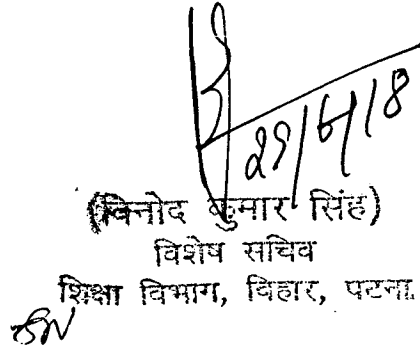 29/6/18
(विनोद कुमार सिंह)
विशेष सचिव
शिक्षा विभाग, विहार, पटना.